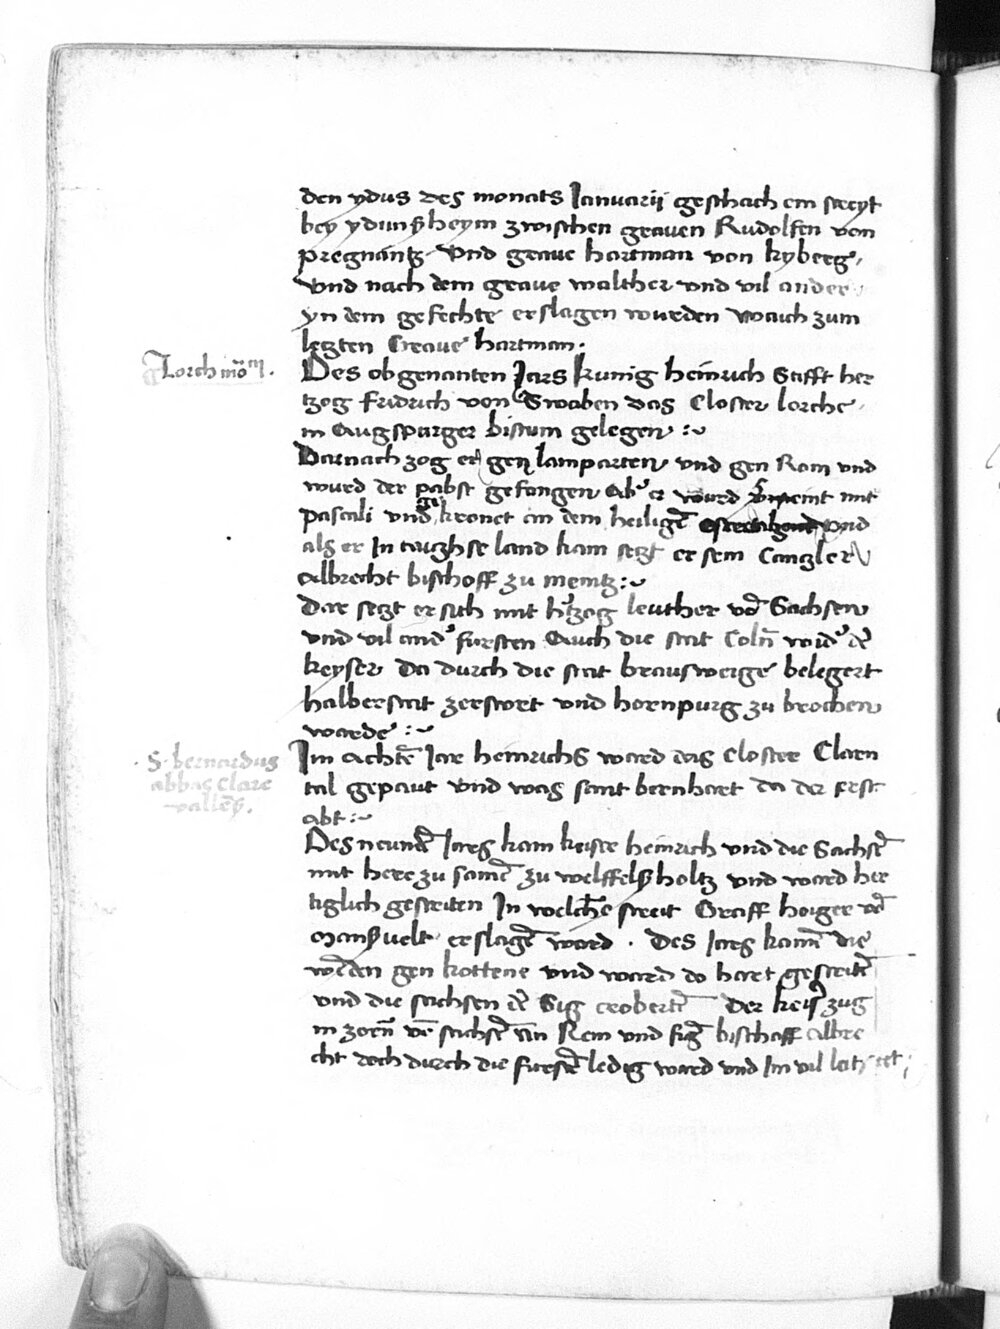 den ydus des monats Januarii geschach ein streyt
bey ydunßheym zwischen graven Rudolfen von
pregnantz Und grave hartman von kyberg,
Und nach dem grave walther und vil ander
yn dem gefechte erslagen wurden Wauch zum
letzten Grave hartman.
Lorch mo
Des obgenanten Jars kunig heinrich Stifft her
tzog fridrich von Swaben das Closter lorche
in Augsparger bistum gelegen :~
Darnach zog er gen lamparten und gen Rom und
wurd der pabst gefongen Ab' er wurd mit
pascali und kronet an dem heiligē und
als er In land kam setzt er sein Canzler
Albrecht bischoff zu meintz :~
Dar setzt er sich mit h'tzog leuther vō Sachsen
und vil and' fursten Auch die stat Colñ wid' dē
keyser Da durch die stat brausweige belegert
halberstat zerstort und hornpurg zu brochen
warde :~
S. bernardus
abbas Clare
vallēs.
Im Achtē Jare heinrichs ward das Closter Claren
tal gepaut und was sant bernhart da der erst
abt :~
Des neundē Jars kam keiser heinrich und die Sachsē
mit here zu samē zu welffelßholtz und ward her
tiglich gestriten In welchē streit Graff hoiger vō
Manßvelt erslagē ward . Des Jars kamē die
wēden gen kottene und ward do hart gestritē
und die sachsen dē Sig erobertē Der keis' zug
in zorñ vō sachsē an Rein und fiēg bischoff Albre
cht doch durch die furstē ledig ward und Im vil